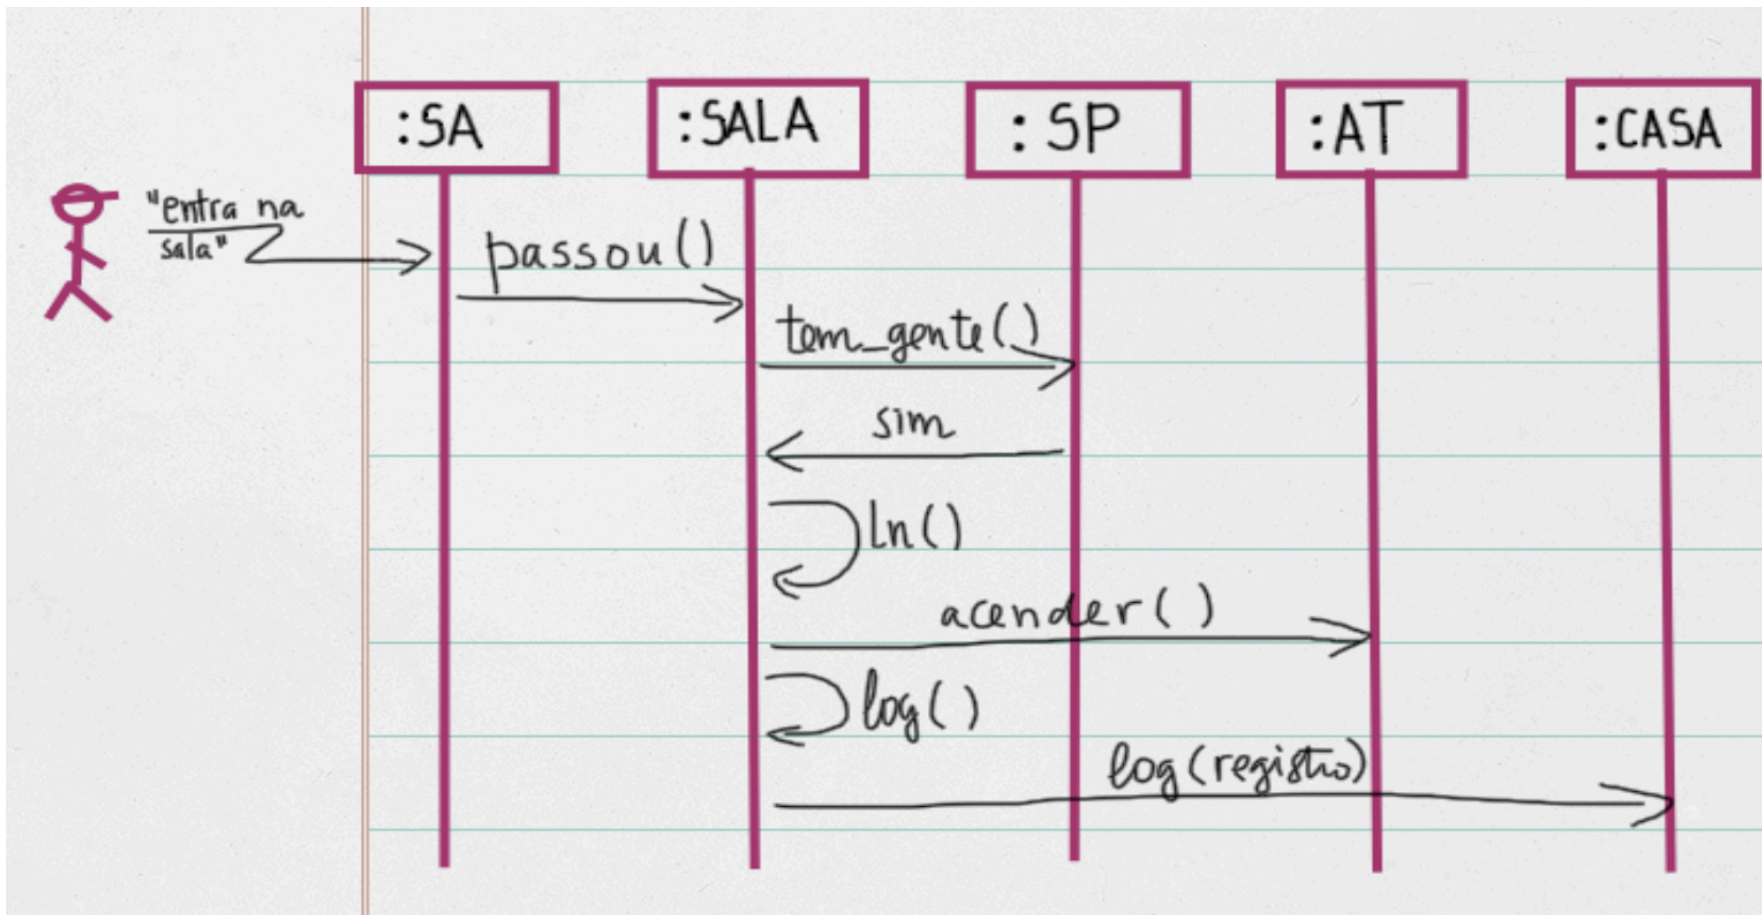 :SA
:SALA
:SP
:AT
:CASA
"entra na
sala"
passou()
tem_gente()
sim
ln()
acender()
log()
log(registro)